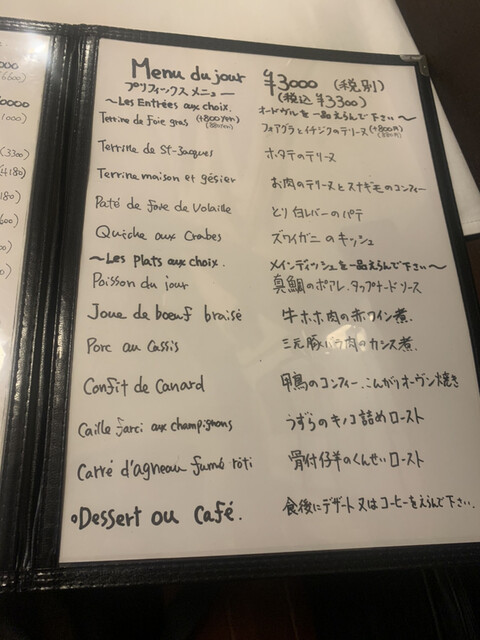 6600)
0000
1000)
(3300)
(4180)
180)
600)
Menu du jour ¥3000 (税別)
プリフィークス メニュー (税込 ¥3300)
～Les Entrées aux choix. オードヴルを一品えらんで下さい～
Terrine de foie gras (+800yen) フォアグラとイチジクのテリーヌ (+800円)
(880yen) (880円)
Terrine de St-Jacques ホタテのテリーヌ
Terrine maison et gésier お肉のテリーヌとスナギモのコンフィー
Paté de foie de Volaille とり白レバーのパテ
Quiche aux Crabes ズワイガニのキッシュ
～Les Plats aux choix. メインディッシュを一品えらんで下さい～
Poisson du jour 真鯛のポアレ.タップナードソース
Joue de bœuf braisé 牛ホホ肉の赤ワイン煮.
Porc au Cassis 三元豚バラ肉のカシス煮.
Confit de Canard 甲鳥のコンフィー.こんがりオーヴン焼き
Caille farci aux champignons うずらのキノコ詰めロースト
Carré d'agneau fumé rôti 骨付仔羊のくんせいロースト
•Dessert ou Café. 食後にデザート又はコーヒーをえらんで下さい.